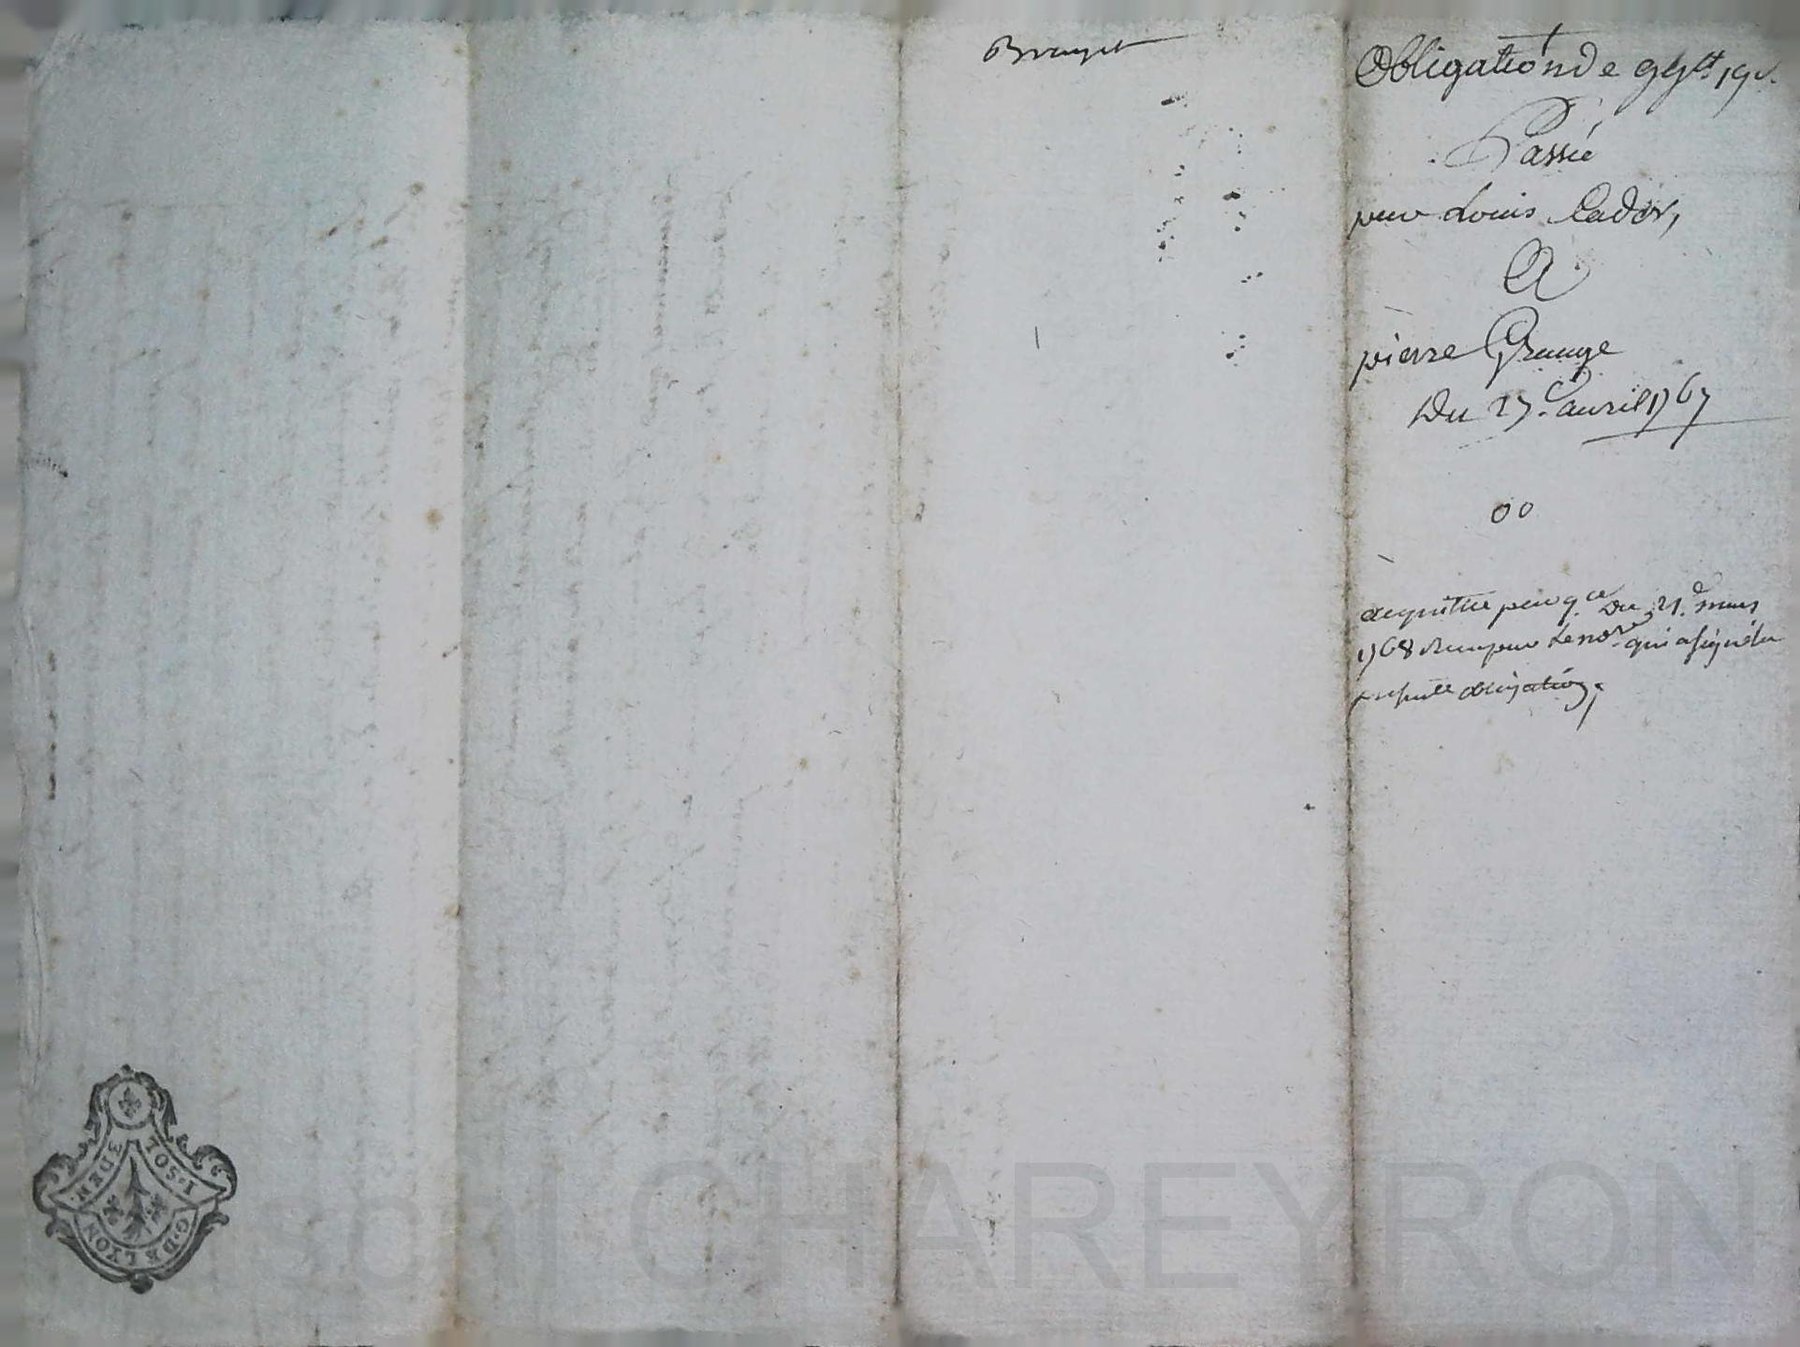 Bruyet
Obligation de 99lt 19s.
Passée
par Louis Cador,
A
pierre Grange
Du 27e. avril 1767
00
acquittée par q.ce Du 21.e mars
1768 Reçu par le no.re qui a signé la
presente obligation,
I·SOL
3 DEN·
G·DE LYON
CHAREYRON